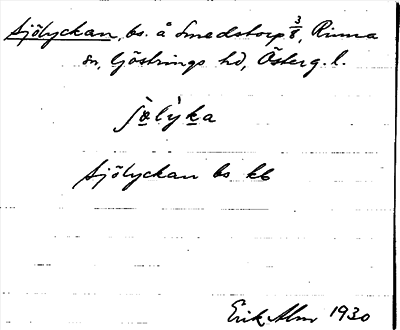 Sjölyckan, bs. å Smedstorp 3/8, Rinna
sn, Göstrings hd, Österg. l.
Sjölyckan bs kb
Erik Alm 1930